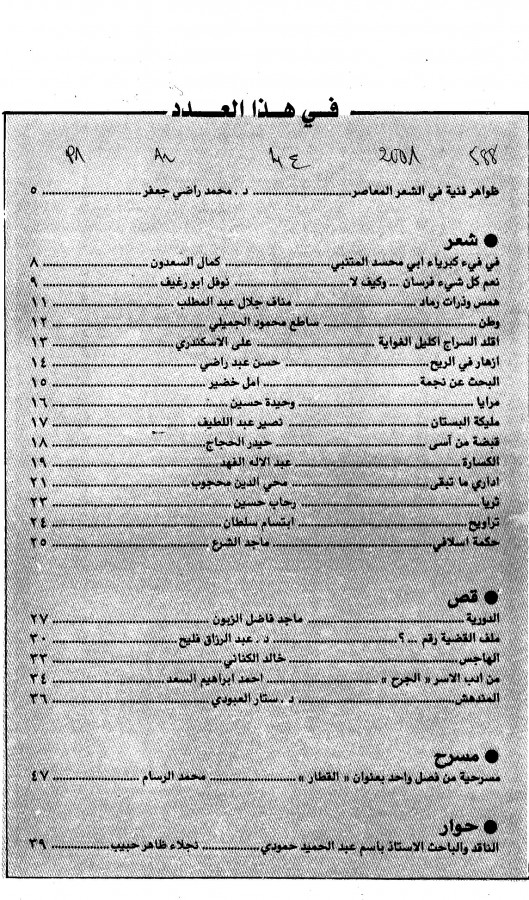 في هذا العدد
588 2001 ع 4 81 P1
ظواهر فنية في الشعر المعاصر ........ د . محمد راضي جعفر ........ ٥
● شعر
في فيء كبرياء ابي محسد المتنبي ........ كمال السعدون ........ ٨
نعم كل شيء فرسان ... وكيف لا ........ نوفل ابو رغيف ........ ٩
همس وذرات رماد ........ مناف جلال عبد المطلب ........ ١١
وطن ........ ساطع محمود الجميلي ........ ١٢
اقلد السراج اكليل الغواية ........ على الاسكندري ........ ١٣
ازهار في الريح ........ حسن عبد راضي ........ ١٤
البحث عن نجمة ........ امل خضير ........ ١٥
مرايا ........ وحيدة حسين ........ ١٦
مليكة البستان ........ نصير عبد اللطيف ........ ١٧
قبضة من آسى ........ حيدر الحجاج ........ ١٨
الكسارة ........ عبد الاله الفهد ........ ١٩
اداري ما تبقى ........ محي الدين محجوب ........ ٢١
ثريا ........ رحاب حسين ........ ٢٣
تراويح ........ ابتسام سلطان ........ ٢٤
حكمة اسلافي ........ ماجد الشرع ........ ٢٥
● قص
الدورية ........ ماجد فاضل الزبون ........ ٢٧
ملف القضية رقم ... ؟ ........ د . عبد الرزاق فليح ........ ٣٠
الهاجس ........ خالد الكناني ........ ٣٣
من ادب الاسر « الجرح » ........ احمد ابراهيم السعد ........ ٣٤
المندهش ........ د . ستار العبودي ........ ٣٦
● مسرح
مسرحية من فصل واحد بعنوان « القطار » ........ محمد الرسام ........ ٤٧
● حوار
الناقد والباحث الاستاذ باسم عبد الحميد حمودي ........ نجلاء ظاهر حبيب ........ ٣٩